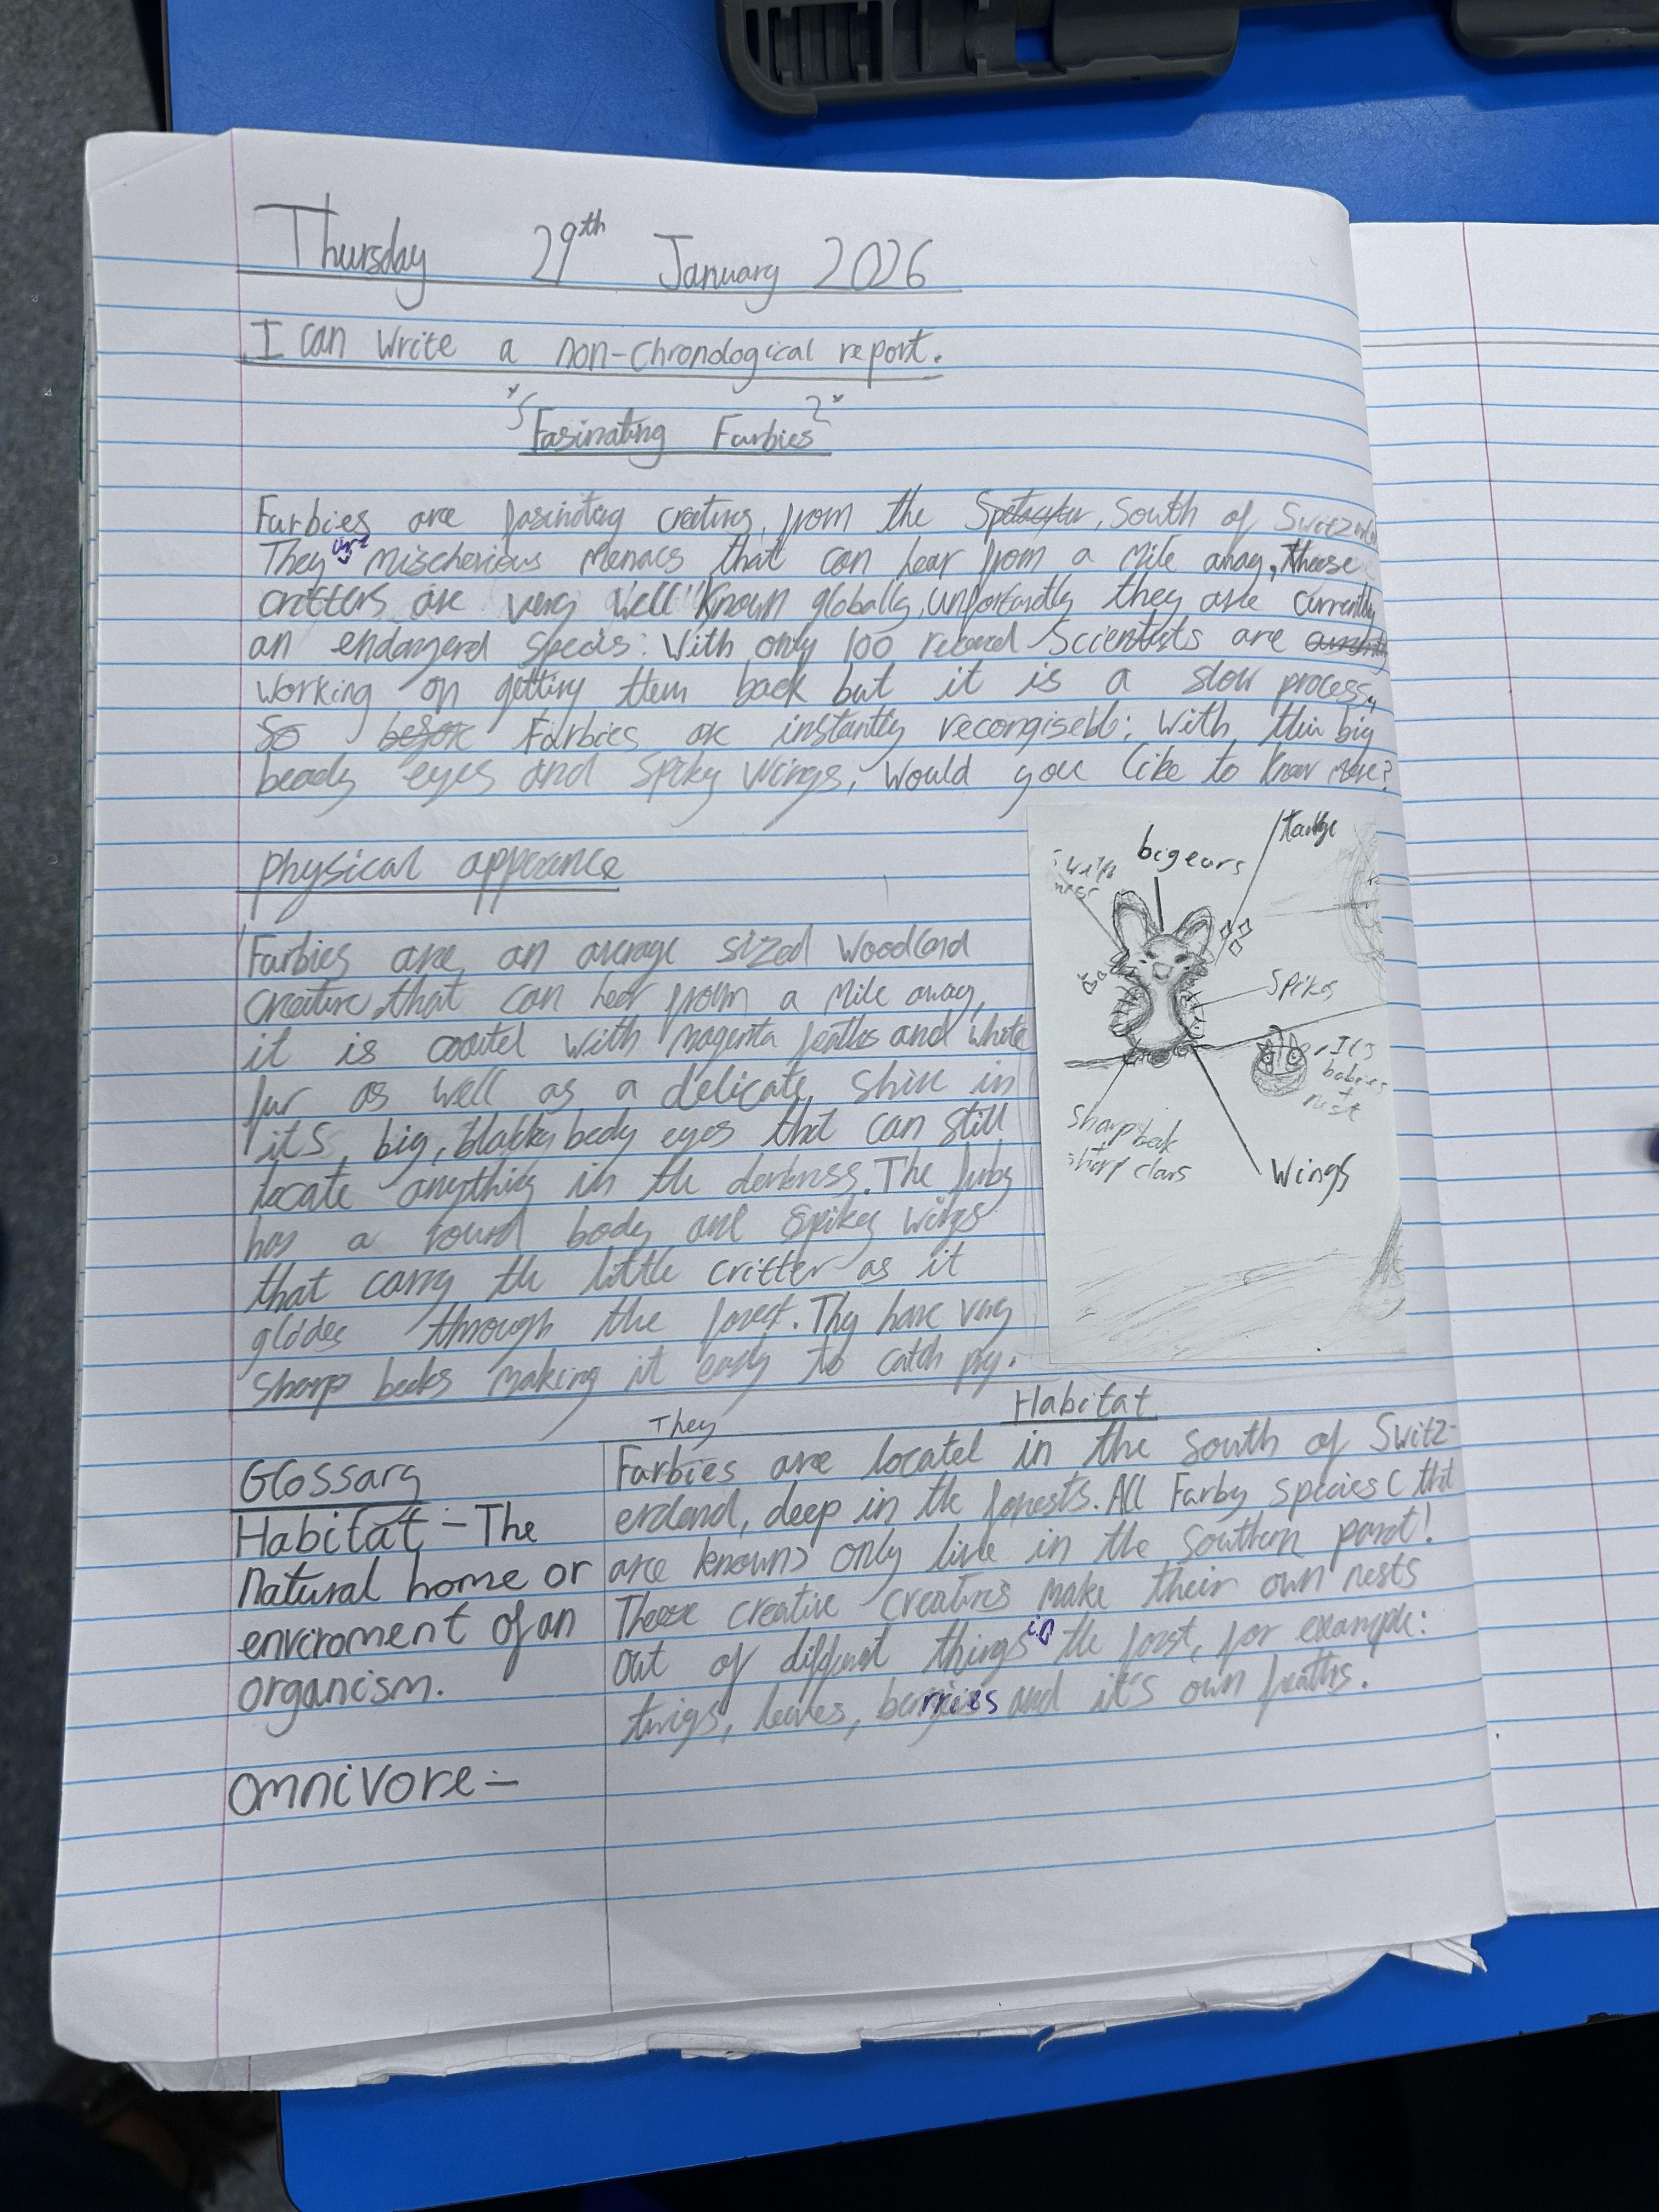 Thursday 29th January 2026
I can write a non-chronological report.
Fasinating Farbies
Farbies are fasinating creatures, from the South of
They are mischevious menacs that can hear from a mile away, these
critters are very well known globally, unfortantly they are currently
an endangerd specis: With only 100 Scientists are
working on getting them back but it is a slow process,
Farbies are instantly recongisebl: with thir big
beady eyes and spiky wings, Would you like to know more?
physical apperence
Farbies are an average sized woodland
creature that can hear from a mile away,
it is coated with magenta feaths and white
fur as well as a delicate shine in
its, big, bedy eyes that can still
locate anything in the darkness. The
has a round body and spikey wings
that carry the little critter as it
glides through the forest. They have very
sharp beeks making it easy to catch pry.
big ears
Spikes
It's babies nest
Sharp beak
Wings
Glossary
Habitat - The
natural home or
enviroment of an
organism.
omnivore -
Habitat
They
Farbies are located in the south of Switz-
erland, deep in the forests. All Farby species (that
are known) only live in the southern part!
These creative creatures make their own nests
out of different things in the forst, for example:
twigs, leaves, berries and it's own feaths.